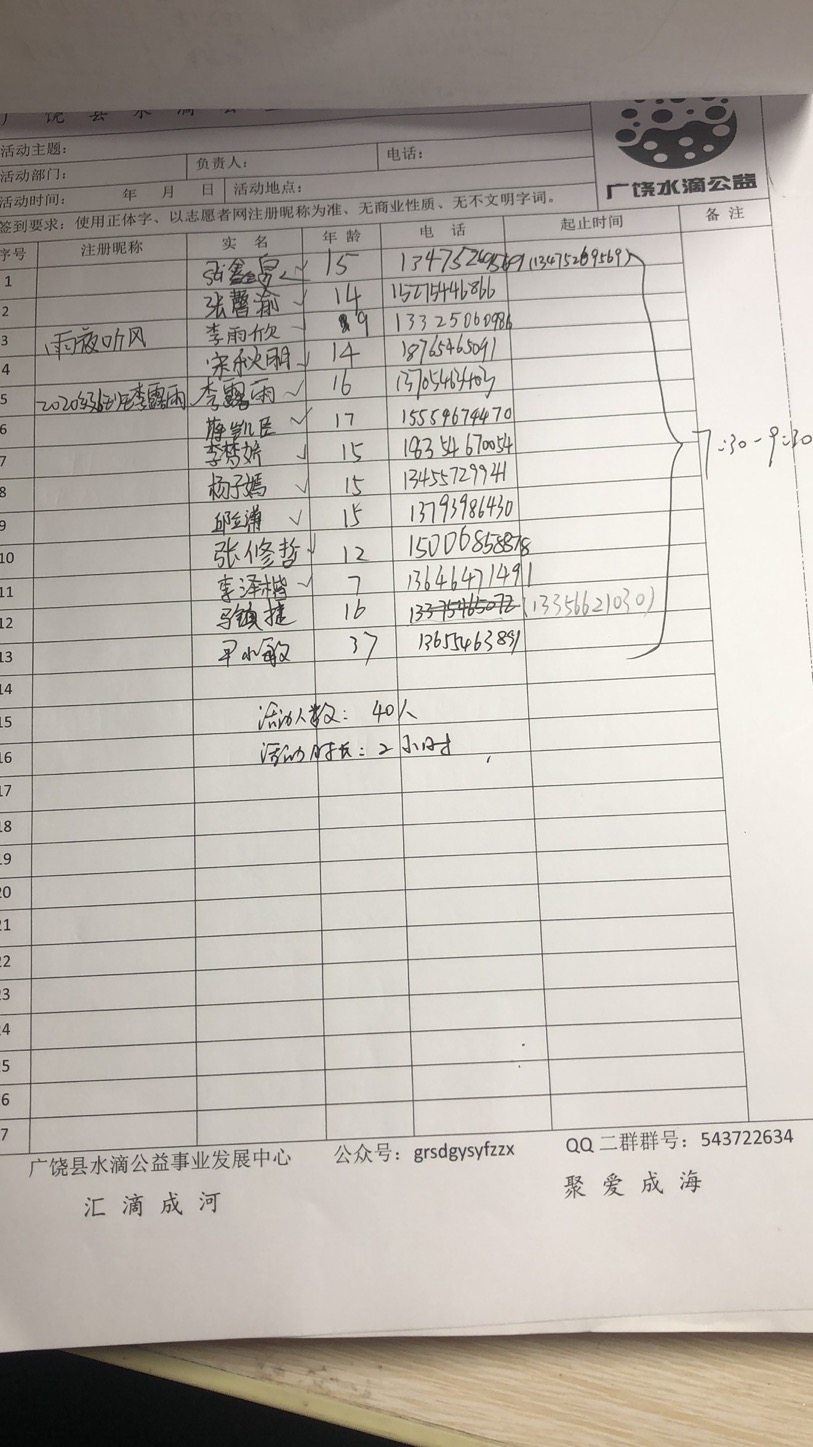 广饶县水滴公
活动主题：
活动部门： 负责人： 电话：
活动时间： 年 月 日 活动地点：
广饶水滴公益
签到要求：使用正体字、以志愿者网注册昵称为准、无商业性质、无不文明字词。
序号 注册昵称 实 名 年 龄 电 话 起止时间 备 注
1 张鑫 ✓ 15 13475269569 (13475269569)
2 张馨渝 ✓ 14 15275446866
3 雨夜听风 李雨欣 ✓ 9 13325060986
4 宋秋明 ✓ 14 18765465091
5 李露雨 李露雨 ✓ 16
6 凯臣 ✓ 17 15559674470
7 李梦娇 ✓ 15 18354670054
7:30-9:30
8 杨子嫣 ✓ 15 13455729941
9 邱 ✓ 15 13793986430
10 张修哲 ✓ 12 15006858878
11 李泽楷 ✓ 7 13646471491
12 马镇捷 16 13375465072 (13356621030)
13 37 13655463891
14
15 活动人数：40人
16 活动时长：2小时
17
18
19
20
21
22
23
24
25
26
27
广饶县水滴公益事业发展中心 公众号：grsdgysyfzzx QQ二群群号：543722634
汇滴成河 聚爱成海